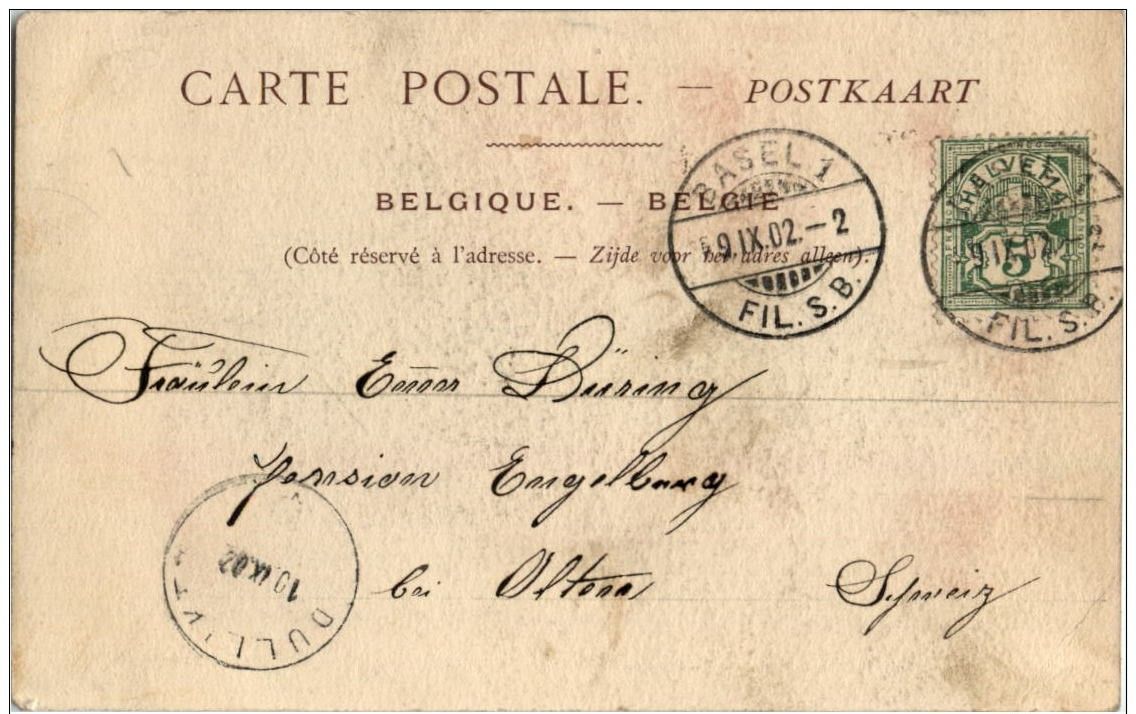 CARTE POSTALE. — POSTKAART
BELGIQUE. — BELGIE
(Côté réservé à l'adresse. — Zijde voor het adres alleen).
BASEL 1
9.IX.02.–2
FIL. S. B.
HELVETIA
5
1
9.IX.02.–2
FIL. S. B.
Fräulein Em̅a Düring
pension Engelburg
bei Olten Schweiz
10.IX.02
DULLIKT